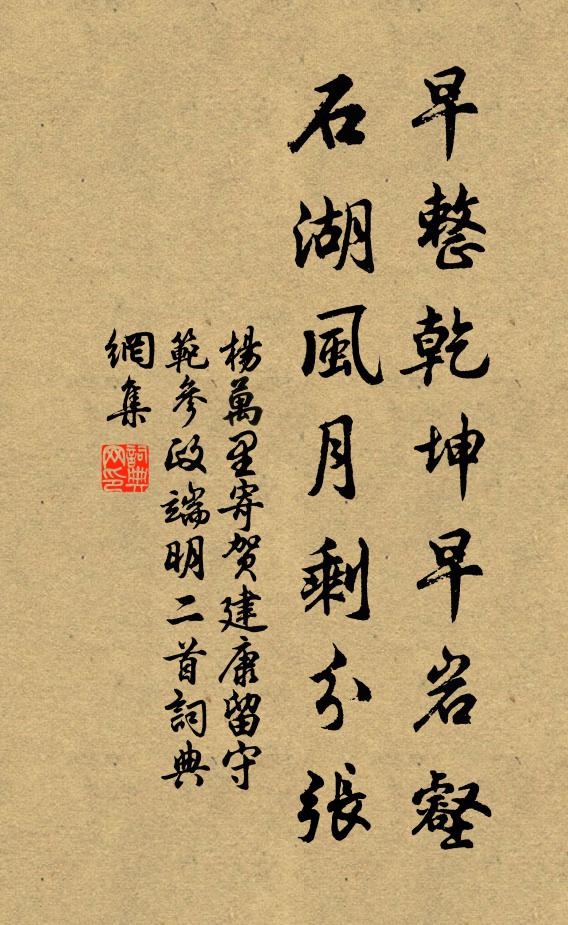 早整乾坤早岩壑
石湖風月剩分張
楊萬里寄贺建康留守
範參政端明二首詞典
網集
詞典
网印